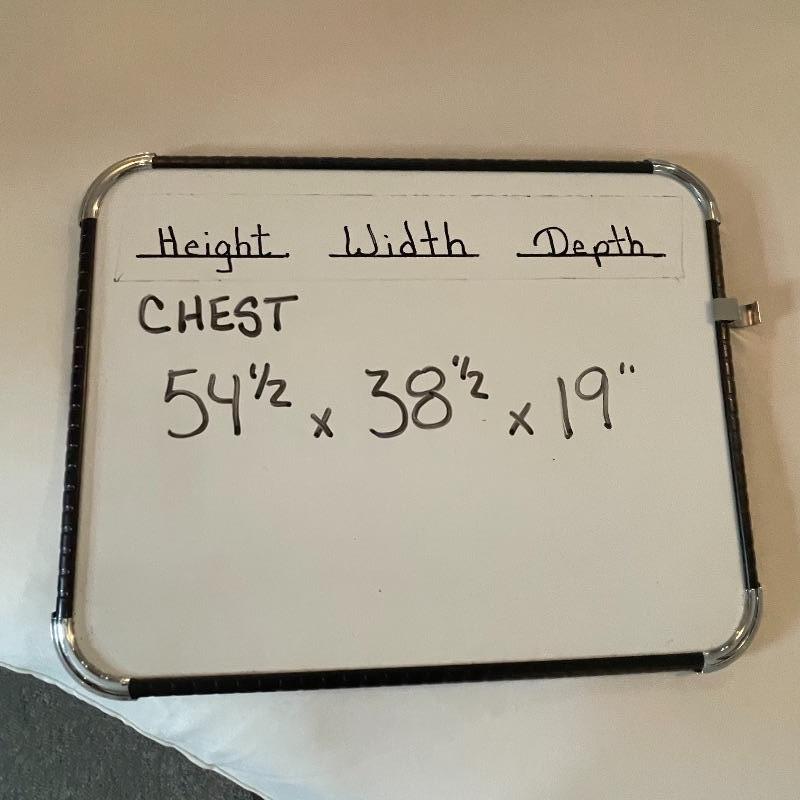 Height Width Depth
CHEST
54 1/2 x 38 1/2 x 19"